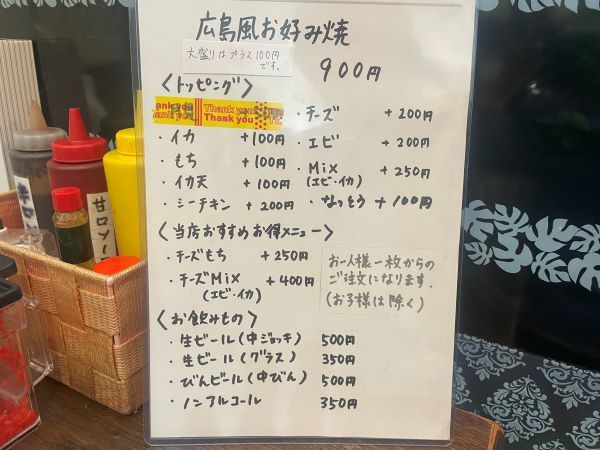 広島風お好み焼
大盛りはプラス100円
です。
900円
〈トッピング〉
ank you Thank you
Thank you
・イカ +100円
・もち +100円
・イカ天 +100円
・シーチキン +200円
・チーズ +200円
・エビ +200円
・Mix +250円
(エビ・イカ)
・なっとう +100円
〈当店おすすめお得メニュー〉
・チーズもち +250円
・チーズMix +400円
(エビ・イカ)
お一人様一枚からの
ご注文になります.
(お子様は除く)
〈お飲みもの〉
・生ビール(中ジョッキ) 500円
・生ビール(グラス) 350円
・びんビール(中びん) 500円
・ノンアルコール 350円
甘口ソー